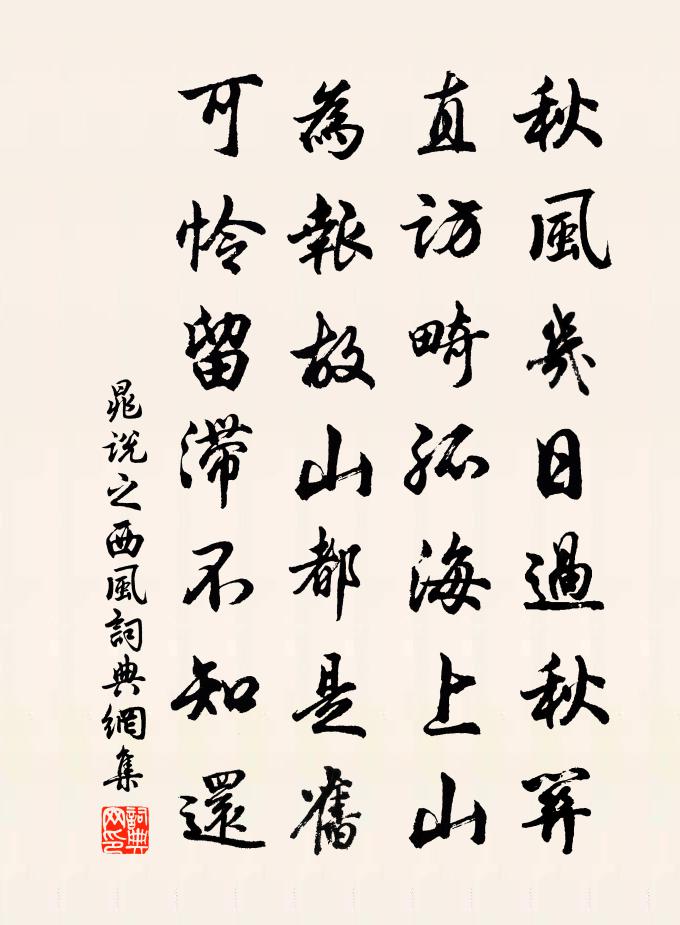 秋風幾日過秋關
直訪畸孤海上山
為報故山都是舊
可憐留滯不知還
晁説之西風詞典網集
詞典网印